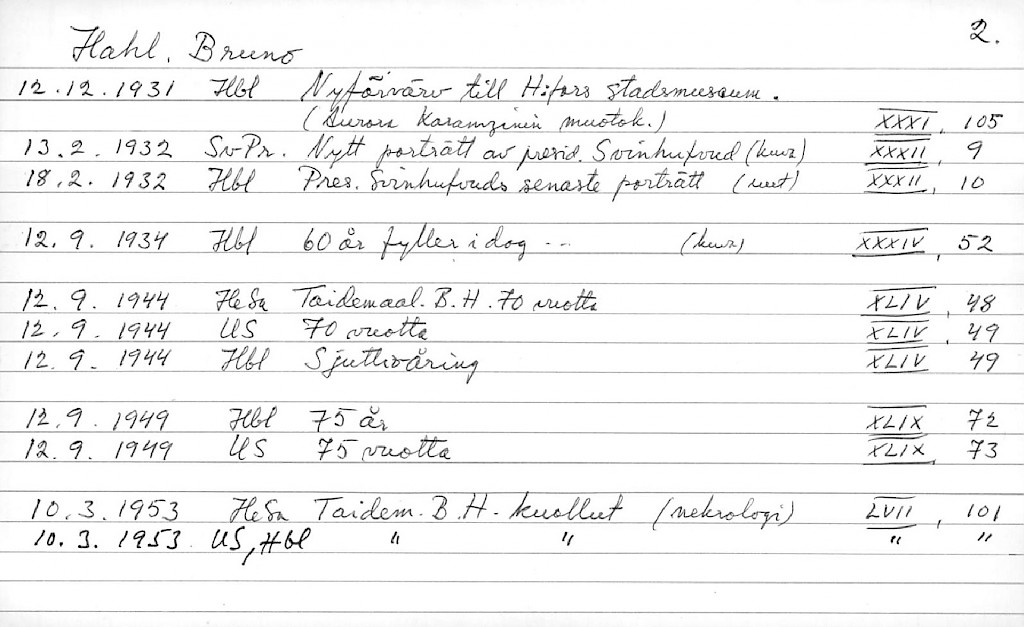 2.
Hahl, Bruno
12.12.1931 Hbl Nyförvärv till H:fors stadsmuseum.
(Aurora Karamzinin muotok.) XXXI, 105
13.2.1932 Sv-Pr. Nytt porträtt av presid. Svinhufvud (kuva) XXXII, 9
18.2.1932 Hbl Pres. Svinhufvuds senaste porträtt XXXII, 10
12.9.1934 Hbl 60 år fyller i dag -- (kuva) XXXIV, 52
12.9.1944 HeSa Taidemaal. B.H. 70 vuotta XLIV, 48
12.9.1944 US 70 vuotta XLIV, 49
12.9.1944 Hbl Sjuttioåring XLIV 49
12.9.1949 Hbl 75 år XLIX, 72
12.9.1949 US 75 vuotta XLIX, 73
10.3.1953 HeSa Taidem. B.H. kuollut (nekrologi) LVII, 101
10.3.1953 US, Hbl " " " "